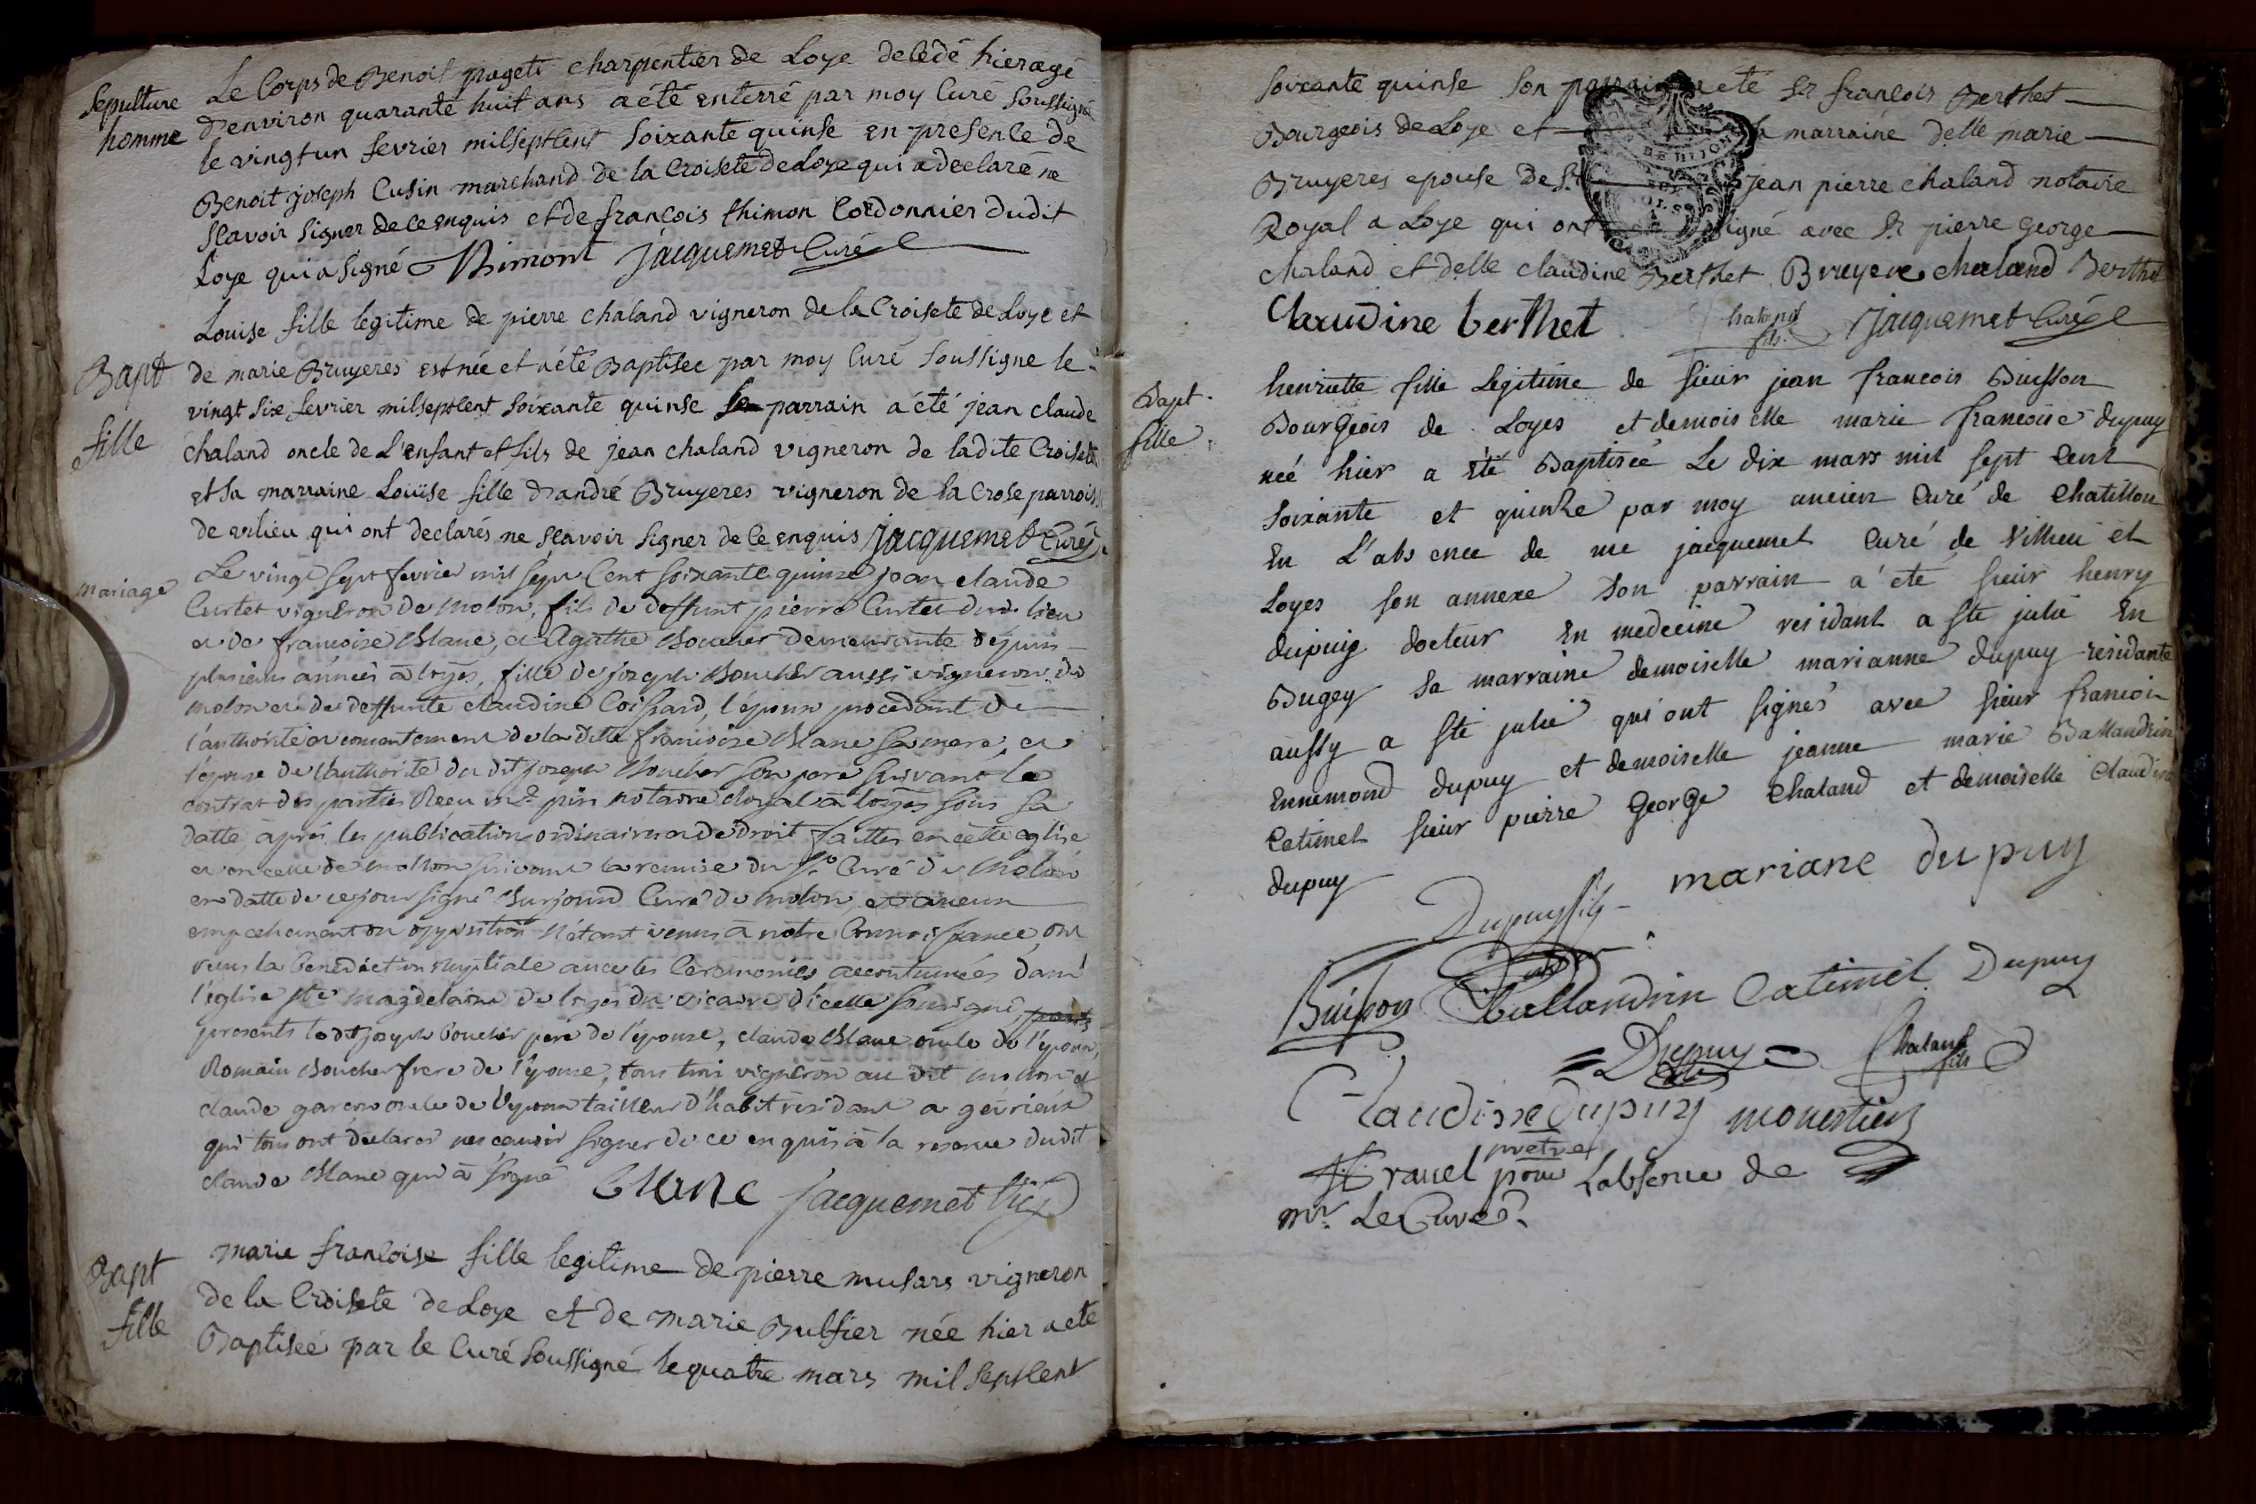 Sepulture
homme
Le Corps de Benoit pugets charpentier de Loye decedé hier agé
d'environ quarante huit ans a été enterré par moy Curé Soussigné
le vingt un fevrier mil sept Cent Soixante quinse en presence de
Benoit joseph Cusin marchand de la Croisete de Loye qui a declaré ne
Scavoir Signer de ce enquis et de francois thimon Cordonnier dudit
Loye qui a Signé Thimont jacquemet Curé
Bapt
fille
Louise fille legitime de pierre chaland vigneron de la Croisete de Loye et
de marie Bruyeres est née et a été Baptisée par moy Curé Soussigne le
vingt six fevrier mil sept Cent Soixante quinse parrain a été jean claude
chaland oncle de L'enfant et fils de jean chaland vigneron de ladite Croisete
et sa marraine Louïse fille d'andré Bruyeres vigneron de la Crose parroisse
de vilieu qui ont declarés ne Scavoir Signer de ce enquis jacquemet Curé
mariage
Le vingt sept fevrier mil sept Cent soixante quinze jean claude
Curtet vigneron de molon, fils de deffunt pierre Curtet dudit lieu
et de francoise Blanc, et Agathe Boucher demeurante depuis
plusieurs années à loyes, fille de joseph Boucher aussi vigneron de
molon et de deffunte claudine Coissard, l'epoux procedant de
l'authorité et consentement de la dite francoise Blanc sa mere, et
l'epouse de l'authorité du dit joseph Boucher son pere suivant le
contrat des parties Receu me pin notaire Royal à loyes sous sa
datte, après les publications ordinaires de droit faittes en cette eglise
et en celle de mollon suivant la remise du Sr Curé de molon
en datte de ce jour signé Surjoud Curé de molon, et aucun
empechement ou opposition n'étant venus à notre Connoissance, ont
receus la benediction nuptiale avec les Ceremonies accoutumées dans
l'église Ste magdelaine de loyes du vicaire d'icelle soussigné
presents ledit joseph boucher pere de l'epouse, claude Blanc oncle de l'epoux,
Romain Boucher frere de l'epouse, tous trois vigneron au dit mollon et
claude garcon oncle de l'epoux tailleur d'habit residant a gevrieux
qui tous ont declarés ne scavoir signer de ce enquis à la reserve dudit
claude Blanc qui à signé blanc jacquemet vic
Bapt
fille
marie francoise fille legitime de pierre musars vigneron
de la Croisete de Loye et de marie Bulfier née hier a ete
Baptisée par le Curé Soussigné le quatre mars mil sept Cent
soixante quinse Son parrain a eté Sr francois Berthet
Bourgeois de Loye et la marraine delle marie
Bruyeres epouse de Sr jean pierre chaland notaire
Royal a Loye qui ont signé avec Sr pierre george
chaland et delle claudine Berthet Bruyere chaland Berthet
Claudine berthet chaland fils jacquemet Curé
Bapt.
fille
henriette fille Legitime de sieur jean francois Buisson
Bourgeois de Loyes et demoiselle marie francoise dupuy
neé hier a été Baptisée Le dix mars mil sept Cent
soixante et quinze par moy ancien Curé de Chatillon
En L'absence de me jacquemet Curé de Villieu et
Loyes son annexe Son parrain a eté sieur henry
dupuy docteur En medecine residant a ste julie En
Bugey sa marraine demoiselle marianne dupuy residante
aussy a ste julie qui ont signés avec sieur francois
Ennemond dupuy et demoiselle jeanne marie Ballandrin
Catimel sieur pierre George Chaland et demoiselle Claudine
dupuy
Dupuy fils mariane dupuy
Buisson Ballandrin Catimel Dupuy
Dupuy Chaland fils
Claudine dupuy monestier
pretre
pour Labsence de
mr. Le Curé